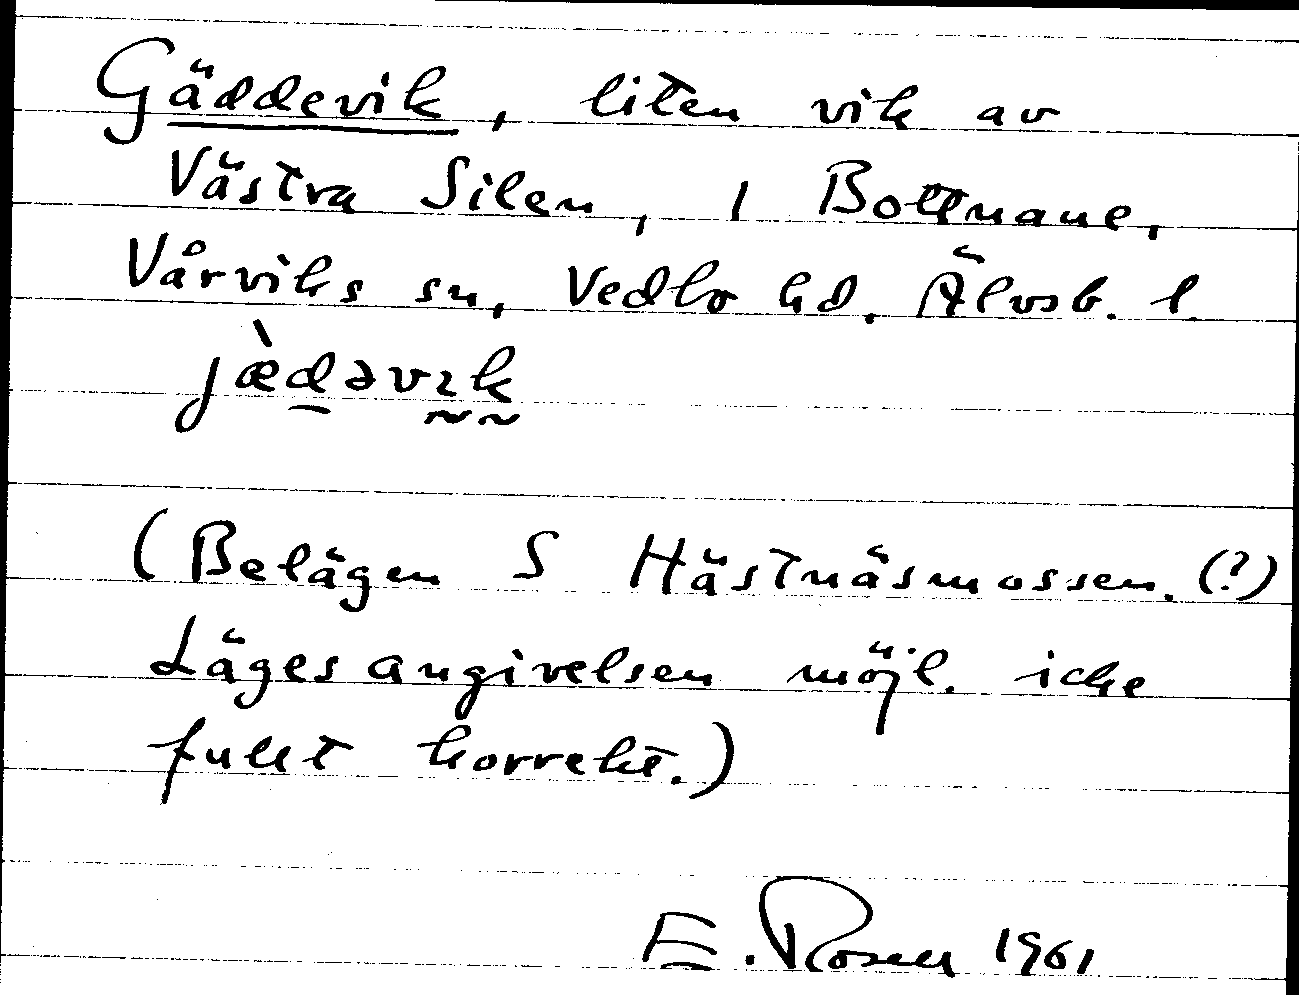 Gäddevik, liten vik av
Västra Silen, i Bottnane,
Vårviks sn, Vedbo hd. Älvsb. l.
jæ̀dəvɩk
(Belägen S Hästnäsmossen. (?)
Lägesangivelsen möjl. icke
fullt korrekt.)
E. Rosen 1961